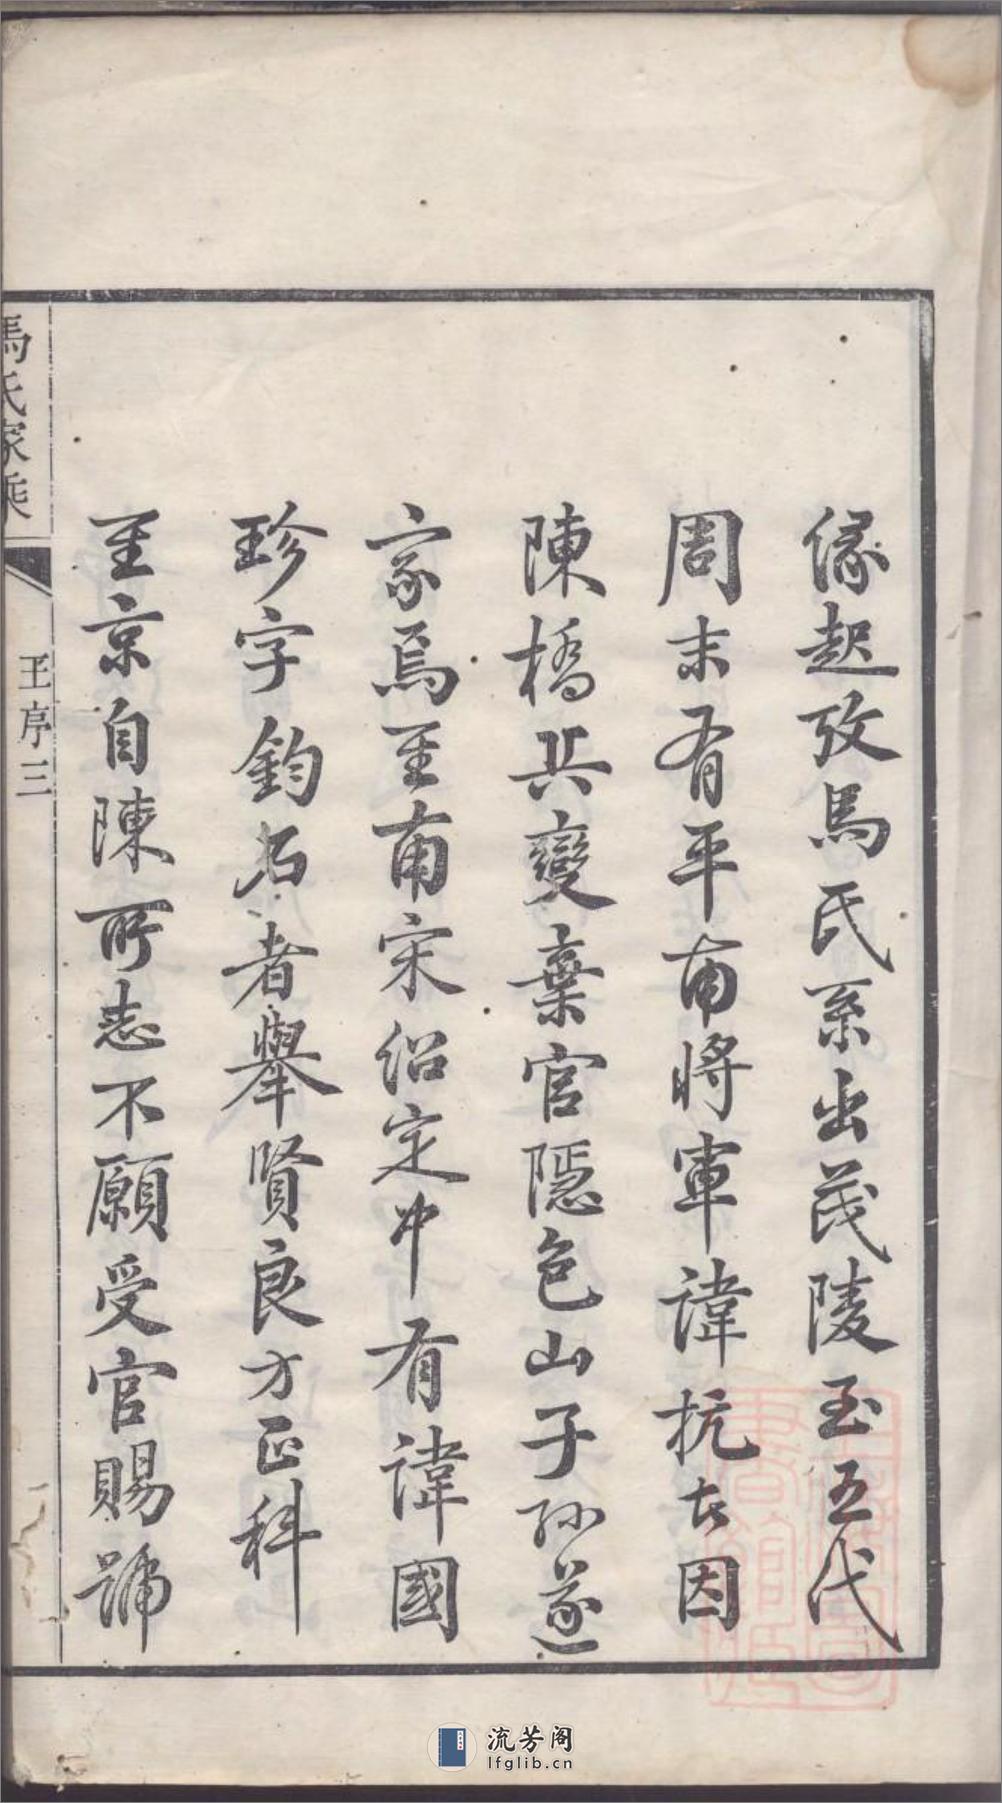 緣起攷馬氏系出茂陵至五代
周末有平南將軍諱抗者因
陳橋兵變棄官隱邑山子孫遂
家焉至南宋紹定中有諱國
珍字鈞石者舉賢良方正科
至京自陳所志不願受官賜號
馬氏家乘
王序三
流芳阁
lfglib.cn